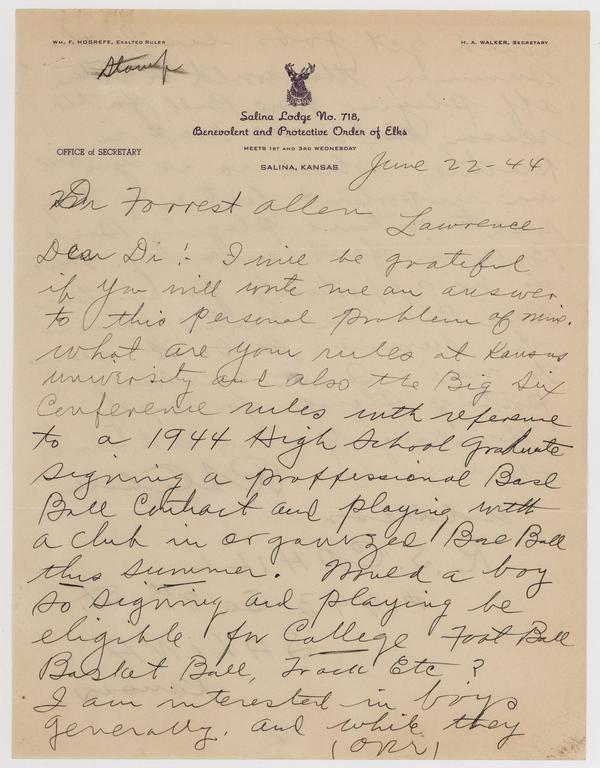 WM. F. HOGREFE, EXALTED RULER
H. A. WALKER, SECRETARY
Stamp
Salina Lodge No. 718,
Benevolent and Protective Order of Elks
MEETS 1ST AND 3RD WEDNESDAY
OFFICE of SECRETARY
SALINA, KANSAS
June 22-44
Dr Forrest Allen
Lawrence
Dear Dr:- I will be grateful
if you will write me an answer
to this personal problem of mine.
What are your rules at Kansas
University and also the Big Six
Conference rules with reference
to a 1944 High School graduate
signing a proffessional Base
Ball Contract and playing with
a club in organized Base Ball
this summer. Would a boy
so signing and playing be
eligible for College Foot Ball
Basket Ball, Track Etc?
I am interested in boys
generally, and while they
(OVER)